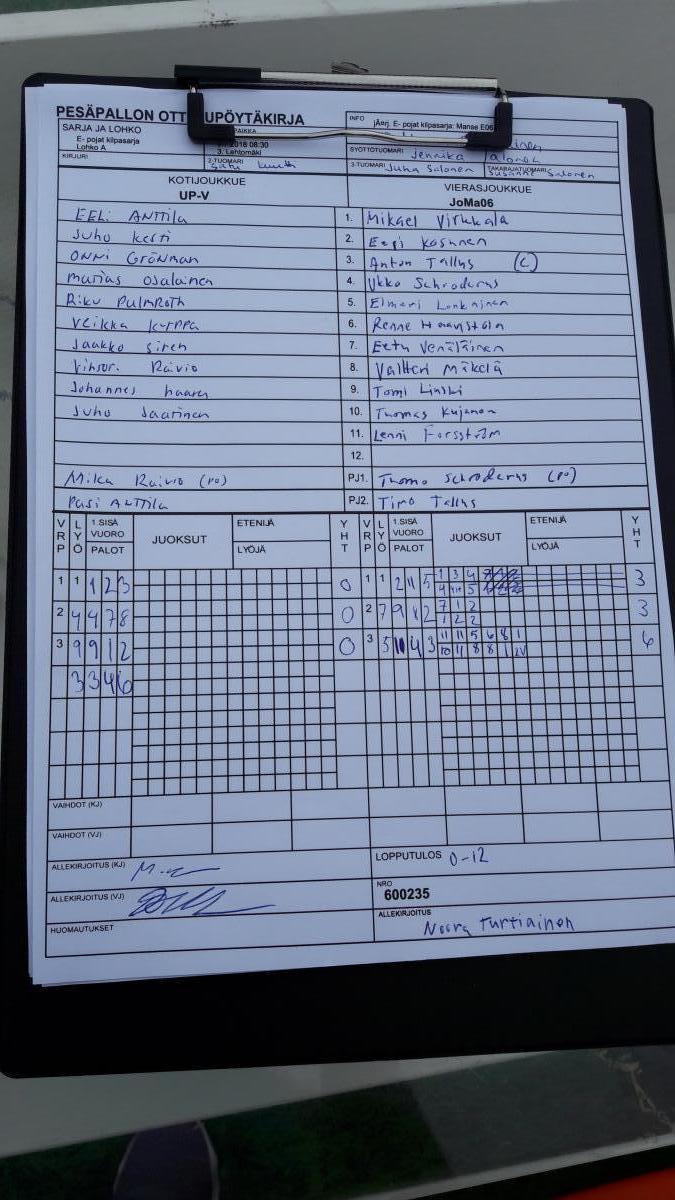 PESÄPALLON OTT UPÖYTÄKIRJA
INFO jÄerj. E- pojat kilpasarja: Manse E06
SARJA JA LOHKO
E- pojat kilpasarja
Lohko A
2018 08:30
3. Lehtomäki
SYÖTTÖTUOMARI Jennika Jalonen
KIRJURI
2-TUOMARI Satu
3-TUOMARI Juha Salonen
TAKARAJATUOMARI Susanne Salonen
KOTIJOUKKUE
UP-V
VIERASJOUKKUE
JoMa06
EELi ANTTila 1. Mikael Virkkala
Juho kerti 2. Eepi Kosunen
ONNi GRöNman 3. Anton Tallus (C)
matias osalainen 4. Ukko Schroderus
Riku PulmRoth 5. Elmeri Lonkainen
Veikka kurppa 6. Renne
Jaakko siren 7. Eetu Venäläinen
Raivio 8. Valtteri Mäkelä
Johannes haaren 9. Tomi
Juho Saarinen 10. Thomas Kujanen
11. Lenni Forsström
12.
Mika Raivio (PO) PJ1. Thomo Schroderus (PO)
Pasi Anttila PJ2. Timo Tallus
VRP LYÖ 1.SISÄ VUORO PALOT JUOKSUT ETENIJÄ LYÖJÄ YHT VRP LYÖ 1.SISÄ VUORO PALOT JUOKSUT ETENIJÄ LYÖJÄ YHT
1 1 1 2 3 0 1 1 2 11 5 1 3 4 3
4 5
2 4 4 7 8 0 2 7 9 12 7 1 2 3
1 2 2
3 9 9 1 2 0 3 5 11 4 3 11 11 5 6 8 1 6
10 11 8 8 1
3 3 4 6
VAIHDOT (KJ)
VAIHDOT (VJ)
ALLEKIRJOITUS (KJ)
LOPPUTULOS 0-12
ALLEKIRJOITUS (VJ)
NRO
600235
HUOMAUTUKSET
ALLEKIRJOITUS
Noora Turtiainen